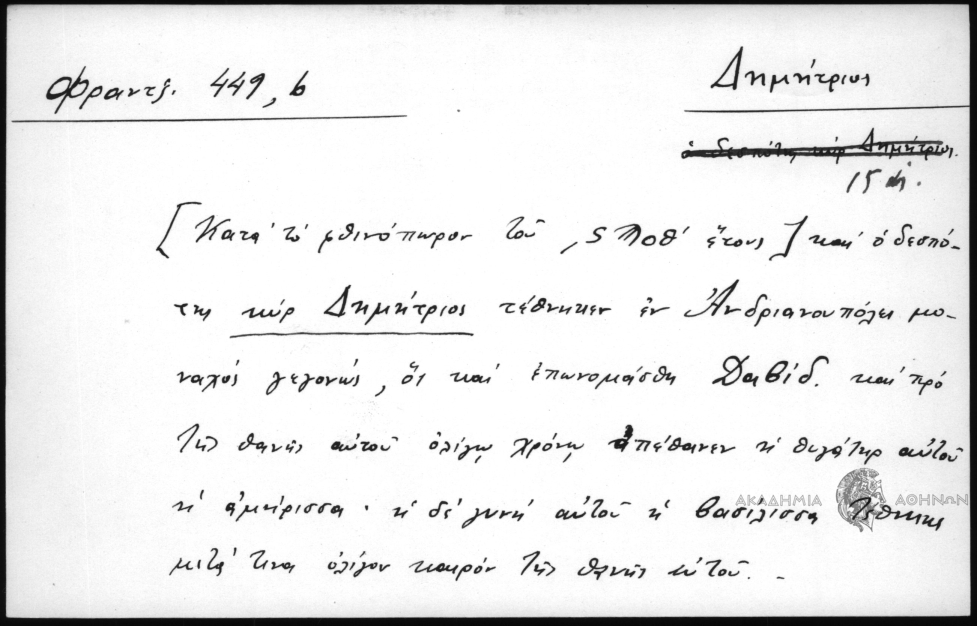 Φραντζ. 449, b
Δημήτριος
ὁ δεσπότης κύρ Δημήτριος.
[Κατά τό φθινόπωρον τοῦ ͵ςϠοθ΄ ἔτους] καί ὁ δεσπό-
της κύρ Δημήτριος τέθνηκεν ἐν Ἀνδριανουπόλει μο-
ναχός γεγονώς, ὅς καί ἐπωνομάσθη Δαβίδ. καί πρό
τῆς θανῆς αὐτοῦ ὀλίγῳ χρόνῳ ἀπέθανεν ἡ θυγάτηρ αὐτοῦ
ἡ ἀμήρισσα · ἡ δέ γυνή αὐτοῦ ἡ βασίλισσα τέθνηκε
μετά τινα ὀλίγον καιρόν τῆς θανῆς αὐτοῦ. -
ΑΚΑΔΗΜΙΑ ΑΘΗΝΩΝ